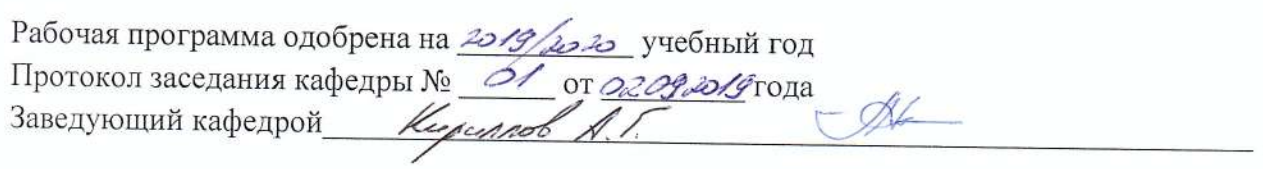 Рабочая программа одобрена на 2019/2020 учебный год
Протокол заседания кафедры № 01 от 02092019 года
Заведующий кафедрой Кириллов А.Г.